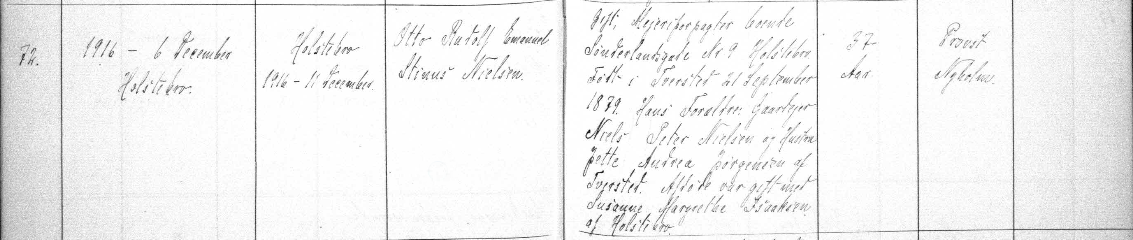 72.
1916 - 6 December
Holstebro.
Holstebro
1916 - 11 December.
Otto Rudolf Emanuel
Stinus Nielsen.
Gift, Mejeriforpagter boende
Sønderlandsgade Nr 9 Holstebro.
Født i Tversted 21 September
1879. Hans Forældre: Gaardejer
Niels Peter Nielsen og Hustru
Jette Andrea Jørgensen af
Tversted. Afdøde var gift med
Susanne Margrethe Isaaksen
af Holstebro.
37
Aar.
Provst
Nyholm.